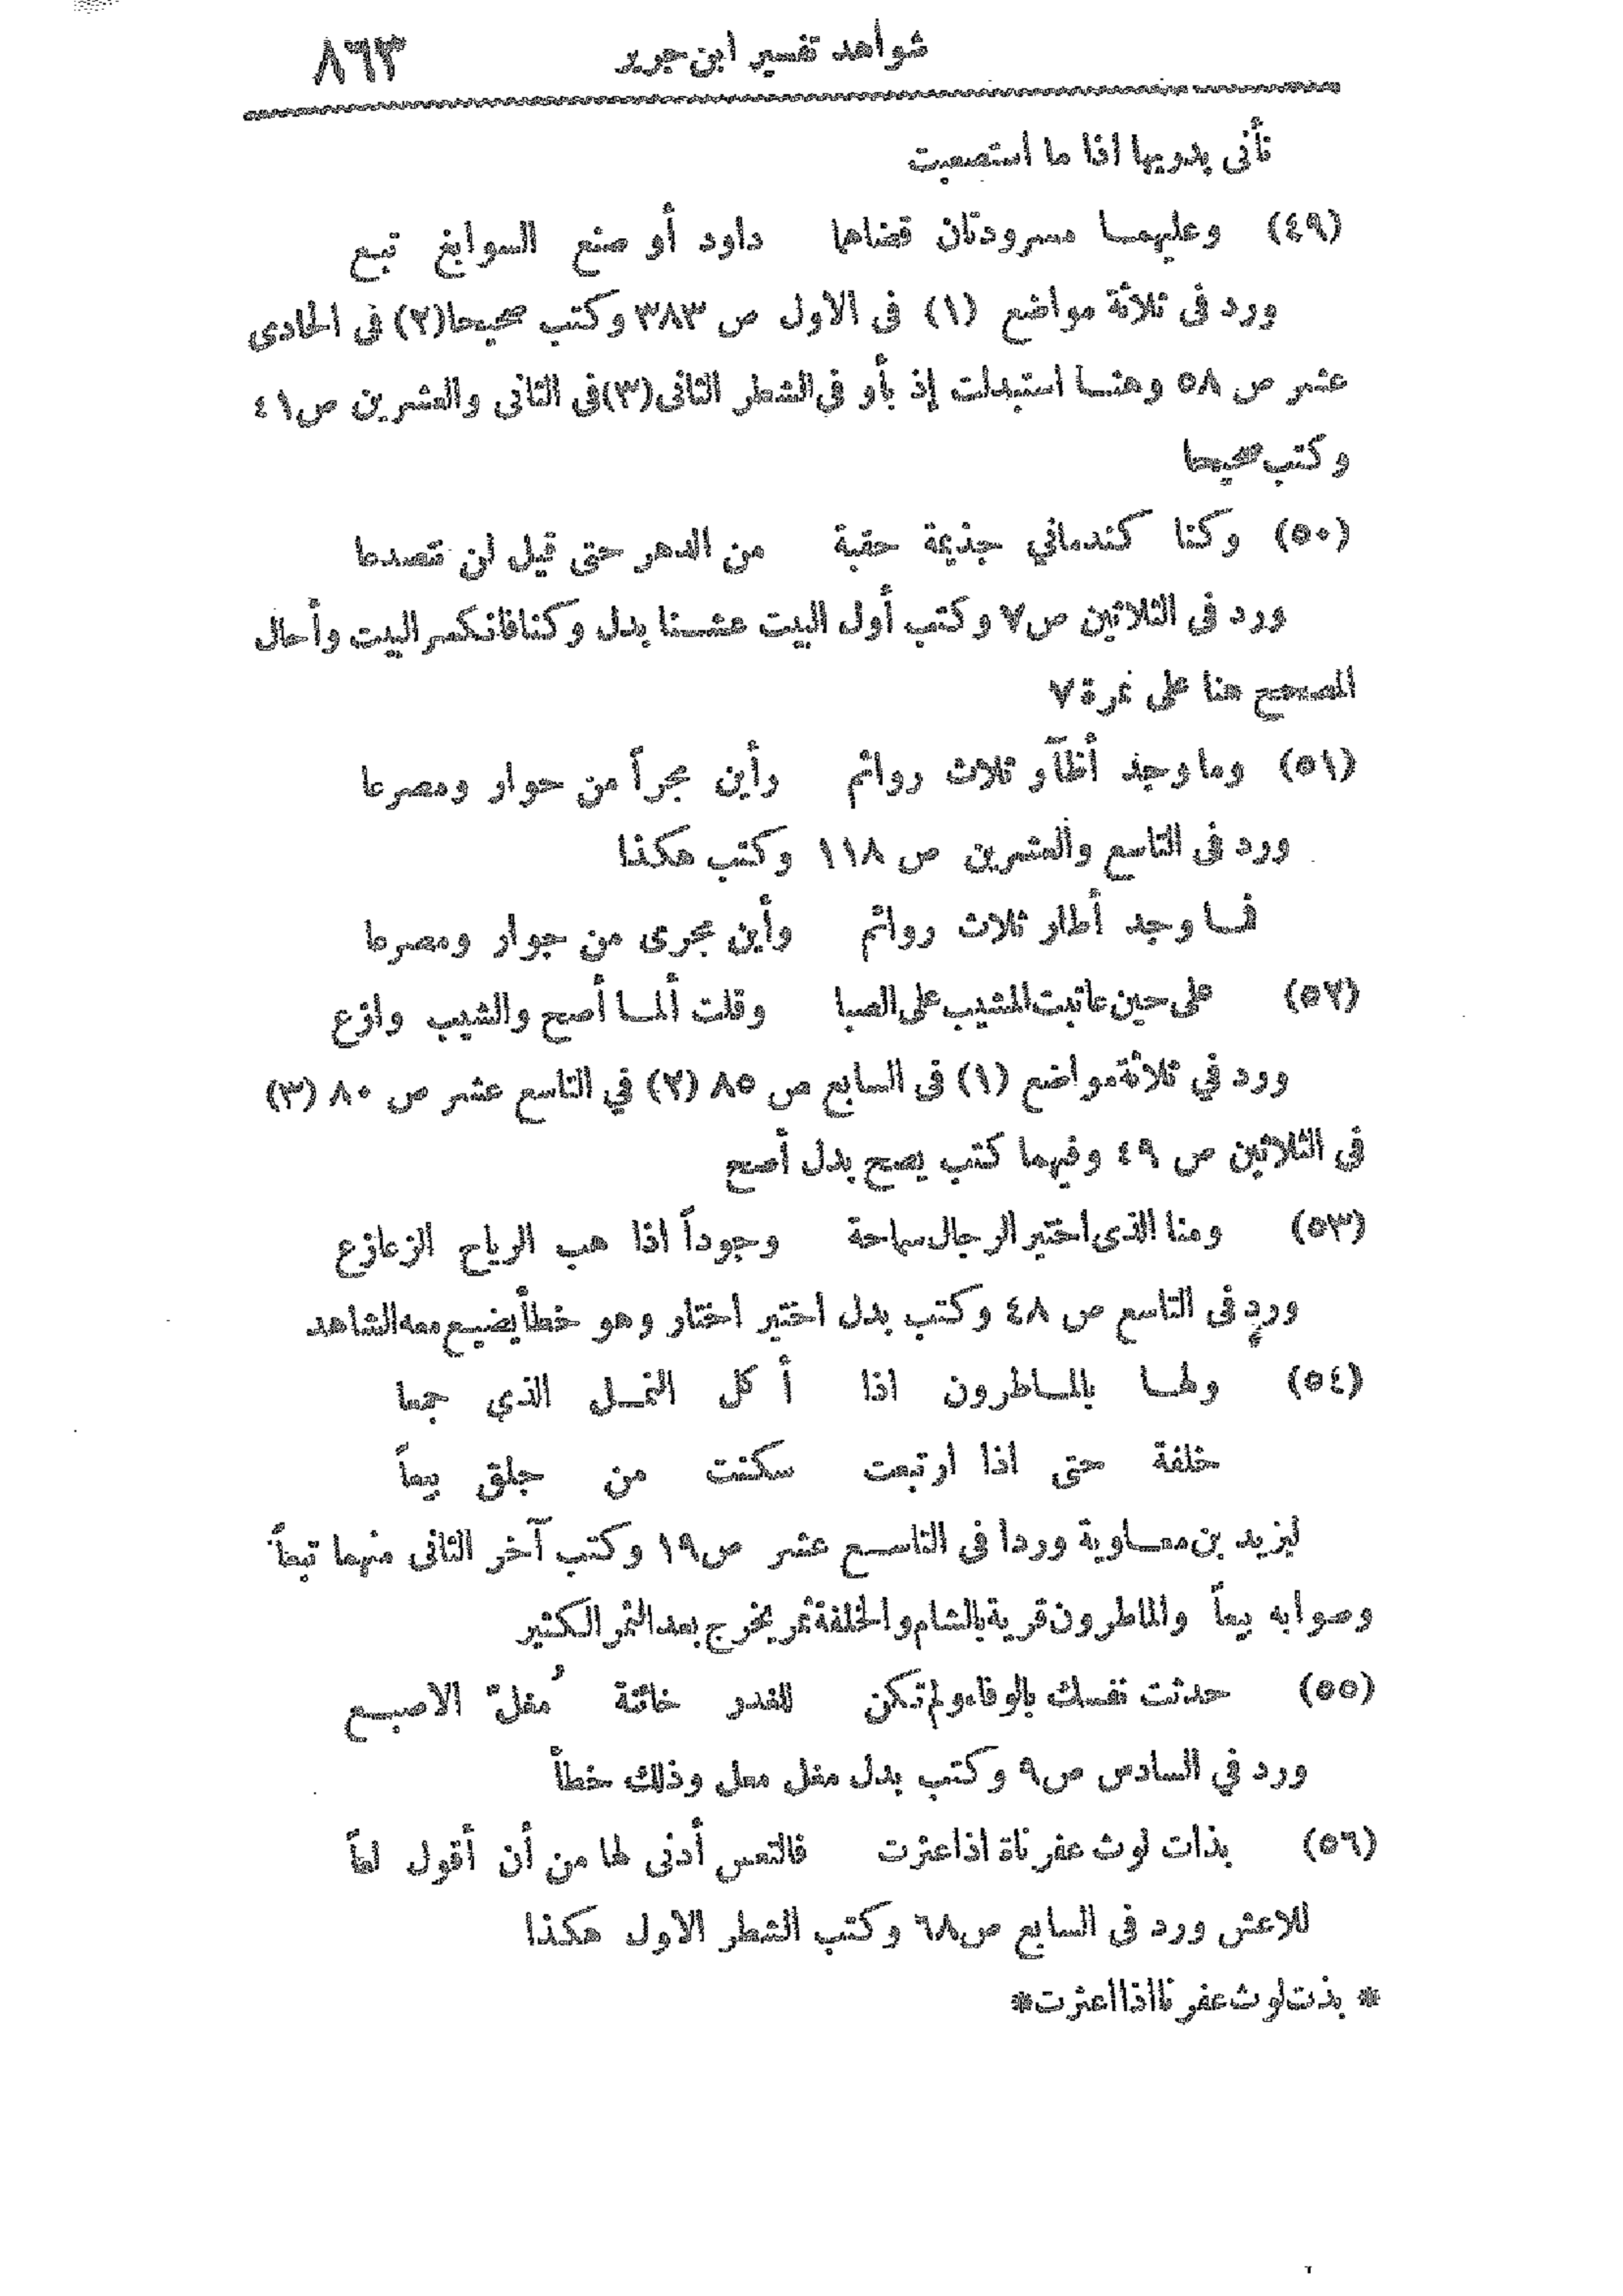 شواهد تفسير ابن جرير ٨٦٣
تأتى بدريها اذا ما استصعبت
(٤٩) وعليهما مسرودتان قضاهما داود أو صنع السوابغ تبع
ورد فى ثلاثة مواضع (١) فى الاول ص ٣٨٣ وكتب صحيحا (٢) فى الحادى
عشر ص ٥٨ وهنا استبدلت إذ بأو فى الشطر الثانى (٣) فى الثانى والعشرين ص ٤١
وكتب صحيحا
(٥٠) وكنا كندماني جذيمة حقبة من الدهر حتى قيل لن تتصدعا
ورد فى الثلاثين ص ٧ وكتب أول البيت عشنا بدل وكنا فانكسر البيت وأحال
المصحح هنا على نمرة ٧
(٥١) وما وجد أظآر ثلاث روائم رأين مجراً من حوار ومصرعا
ورد فى التاسع والعشرين ص ١١٨ وكتب هكذا
فما وجد أطار ثلاث روائم وأين مجرى من جوار ومصرعا
(٥٢) على حين عاتبت المشيب على الصبا وقلت ألما أصح والشيب وازع
ورد في ثلاثة مواضع (١) فى السابع ص ٨٥ (٢) في التاسع عشر ص ٨٠ (٣)
فى الثلاثين ص ٤٩ وفيهما كتب يصح بدل أصح
(٥٣) ومنا الذى اختير الرجال سماحة وجوداً اذا هب الرياح الزعازع
ورد فى التاسع ص ٤٨ وكتب بدل اختير اختار وهو خطأ يضيع معه الشاهد
(٥٤) ولها بالماطرون اذا أكل النمل الذي جمعا
خلفة حتى اذا ارتبعت سكنت من جلق بيعاً
ليزيد بن معاوية وردا فى التاسع عشر ص ١٩ وكتب آخر الثانى منهما تبعاً
وصوابه بيعاً والماطرون قرية بالشام والخلفة ثمر يخرج بعد الثمر الكثير
(٥٥) حدثت نفسك بالوفاء ولم تكن للغدر خائنة مُغلّ الاصبع
ورد في السادس ص ٩ وكتب بدل مغل معل وذلك خطأ
(٥٦) بذات لوث عفرناة اذا عثرت فالتعس أدنى لها من أن أقول لعاً
للاعش ورد فى السابع ص ٦٨ وكتب الشطر الاول هكذا
* بذت لوث عفرنا اذا اعثرت *